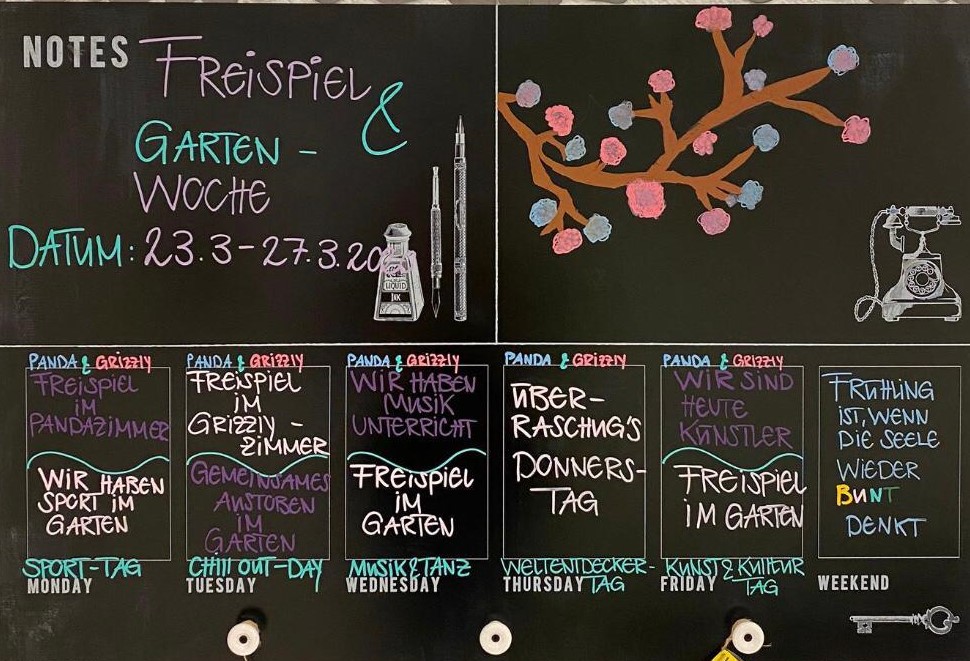 NOTES
FREISPIEL
&
GARTEN-
WOCHE
DATUM: 23.3-27.3.20
LIQUID
INK
PANDA & GRIZZLY
FREISPIEL
IM
PANDAZIMMER
WIR HABEN
SPORT IM
GARTEN
SPORT-TAG
MONDAY
PANDA & GRIZZLY
FREISPIEL
IM
GRIZZLY-
ZIMMER
GEMEINSAMES
AUSTOBEN
IM
GARTEN
CHILL OUT-DAY
TUESDAY
PANDA & GRIZZLY
WIR HABEN
MUSIK
UNTERRICHT
FREISPIEL
IM
GARTEN
MUSIK & TANZ
WEDNESDAY
PANDA & GRIZZLY
ÜBER-
RASCHUG'S
DONNERS-
TAG
WELTENTDECKER-
THURSDAY TAG
PANDA & GRIZZLY
WIR SIND
HEUTE
KÜNSTLER
FREISPIEL
IM GARTEN
KUNST & KULTUR
FRIDAY TAG
FRÜHLING
IST, WENN
DIE SEELE
WIEDER
BUNT
DENKT
WEEKEND